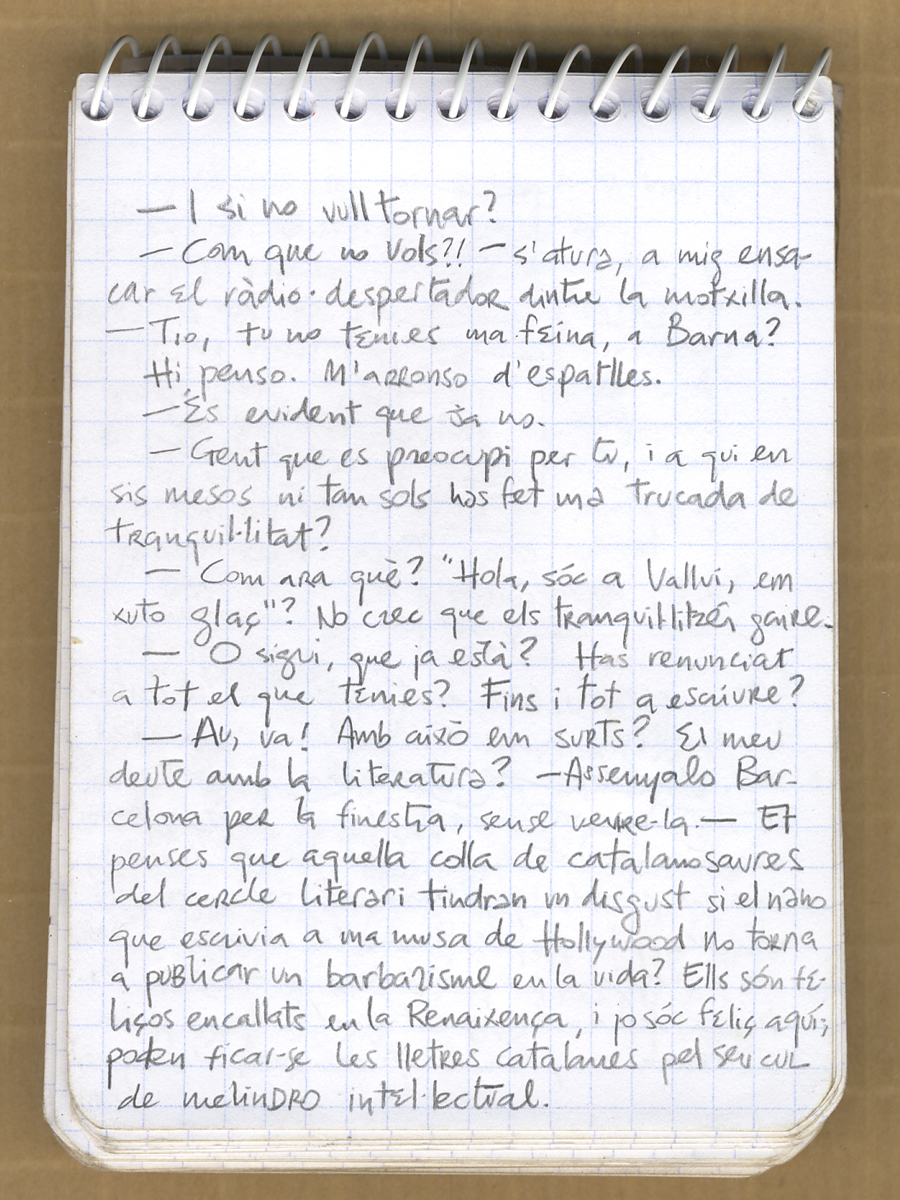 — I si no vull tornar?
— Com que no vols?! — s'atura, a mig ensa-
car el ràdio-despertador dintre la motxilla.
— Tio, tu no tenies una feina, a Barna?
Hi penso. M'arronso d'espatlles.
— És evident que ja no.
— Gent que es preocupi per tu, i a qui en
sis mesos ni tan sols has fet una trucada de
tranquil·litat?
— Com ara què? "Hola, sóc a Vallvi, em
xuto glaç"? No crec que els tranquil·litzés gaire.
— O sigui, que ja està? Has renunciat
a tot el que tenies? Fins i tot a escriure?
— Au, va! Amb això em surts? El meu
deute amb la literatura? — Assenyalo Bar-
celona per la finestra, sense veure-la. — Et
penses que aquella colla de catalanosaures
del cercle literari tindran un disgust si el nano
que escrivia a una musa de Hollywood no torna
a publicar un barbarisme en la vida? Ells són fe-
liços encallats en la Renaixença, i jo sóc feliç aquí;
poden ficar-se les lletres catalanes pel seu cul
de melindro intel·lectual.